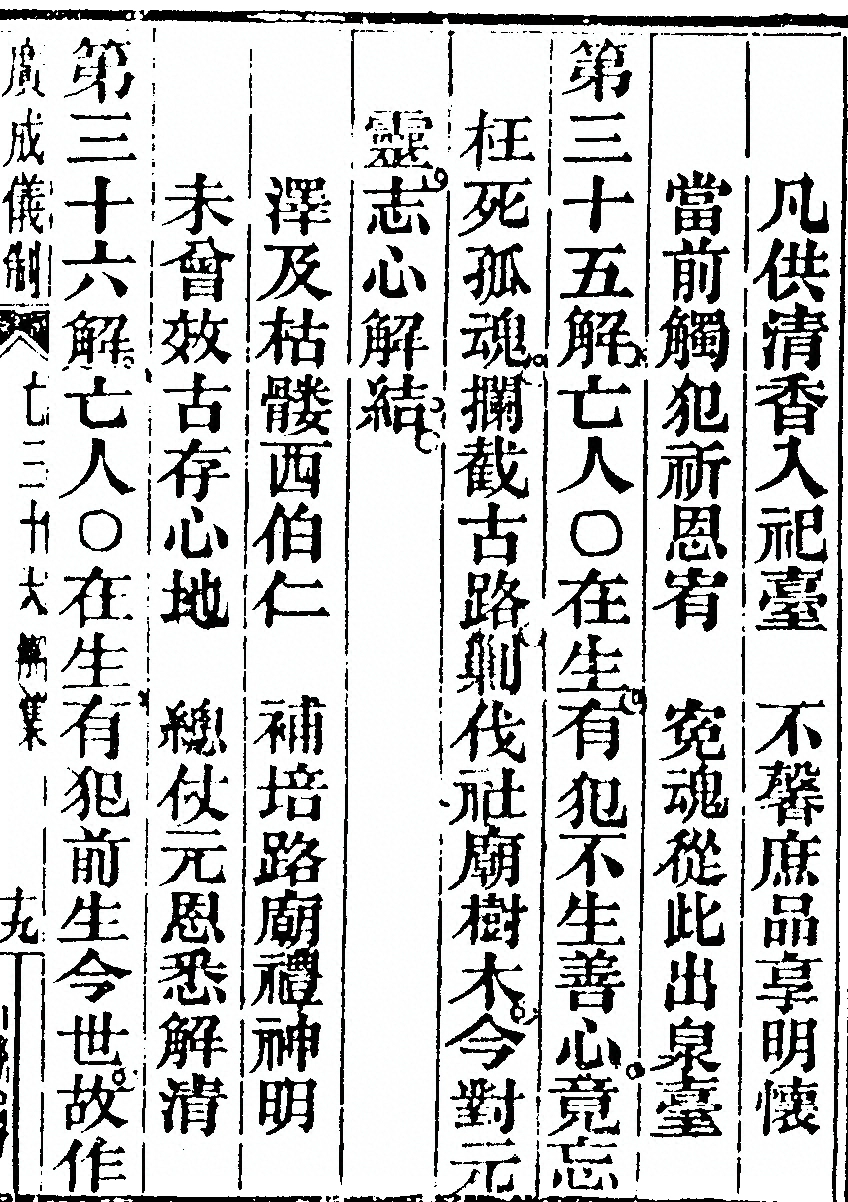 凡供清香入祀臺　不馨庶品享明懷
當前觸犯祈恩宥　寃魂從此出泉臺
第三十五解亡人○在生有犯不生善心竟忘
枉死孤魂攔截古路剿伐社廟樹木今對元
靈志心解結
澤及枯髏西伯仁　補培路廟禮神明
未曾效古存心地　總仗元恩悉解清
第三十六解亡人○在生有犯前生今世故作
廣成儀制　亡三十六解集　十九